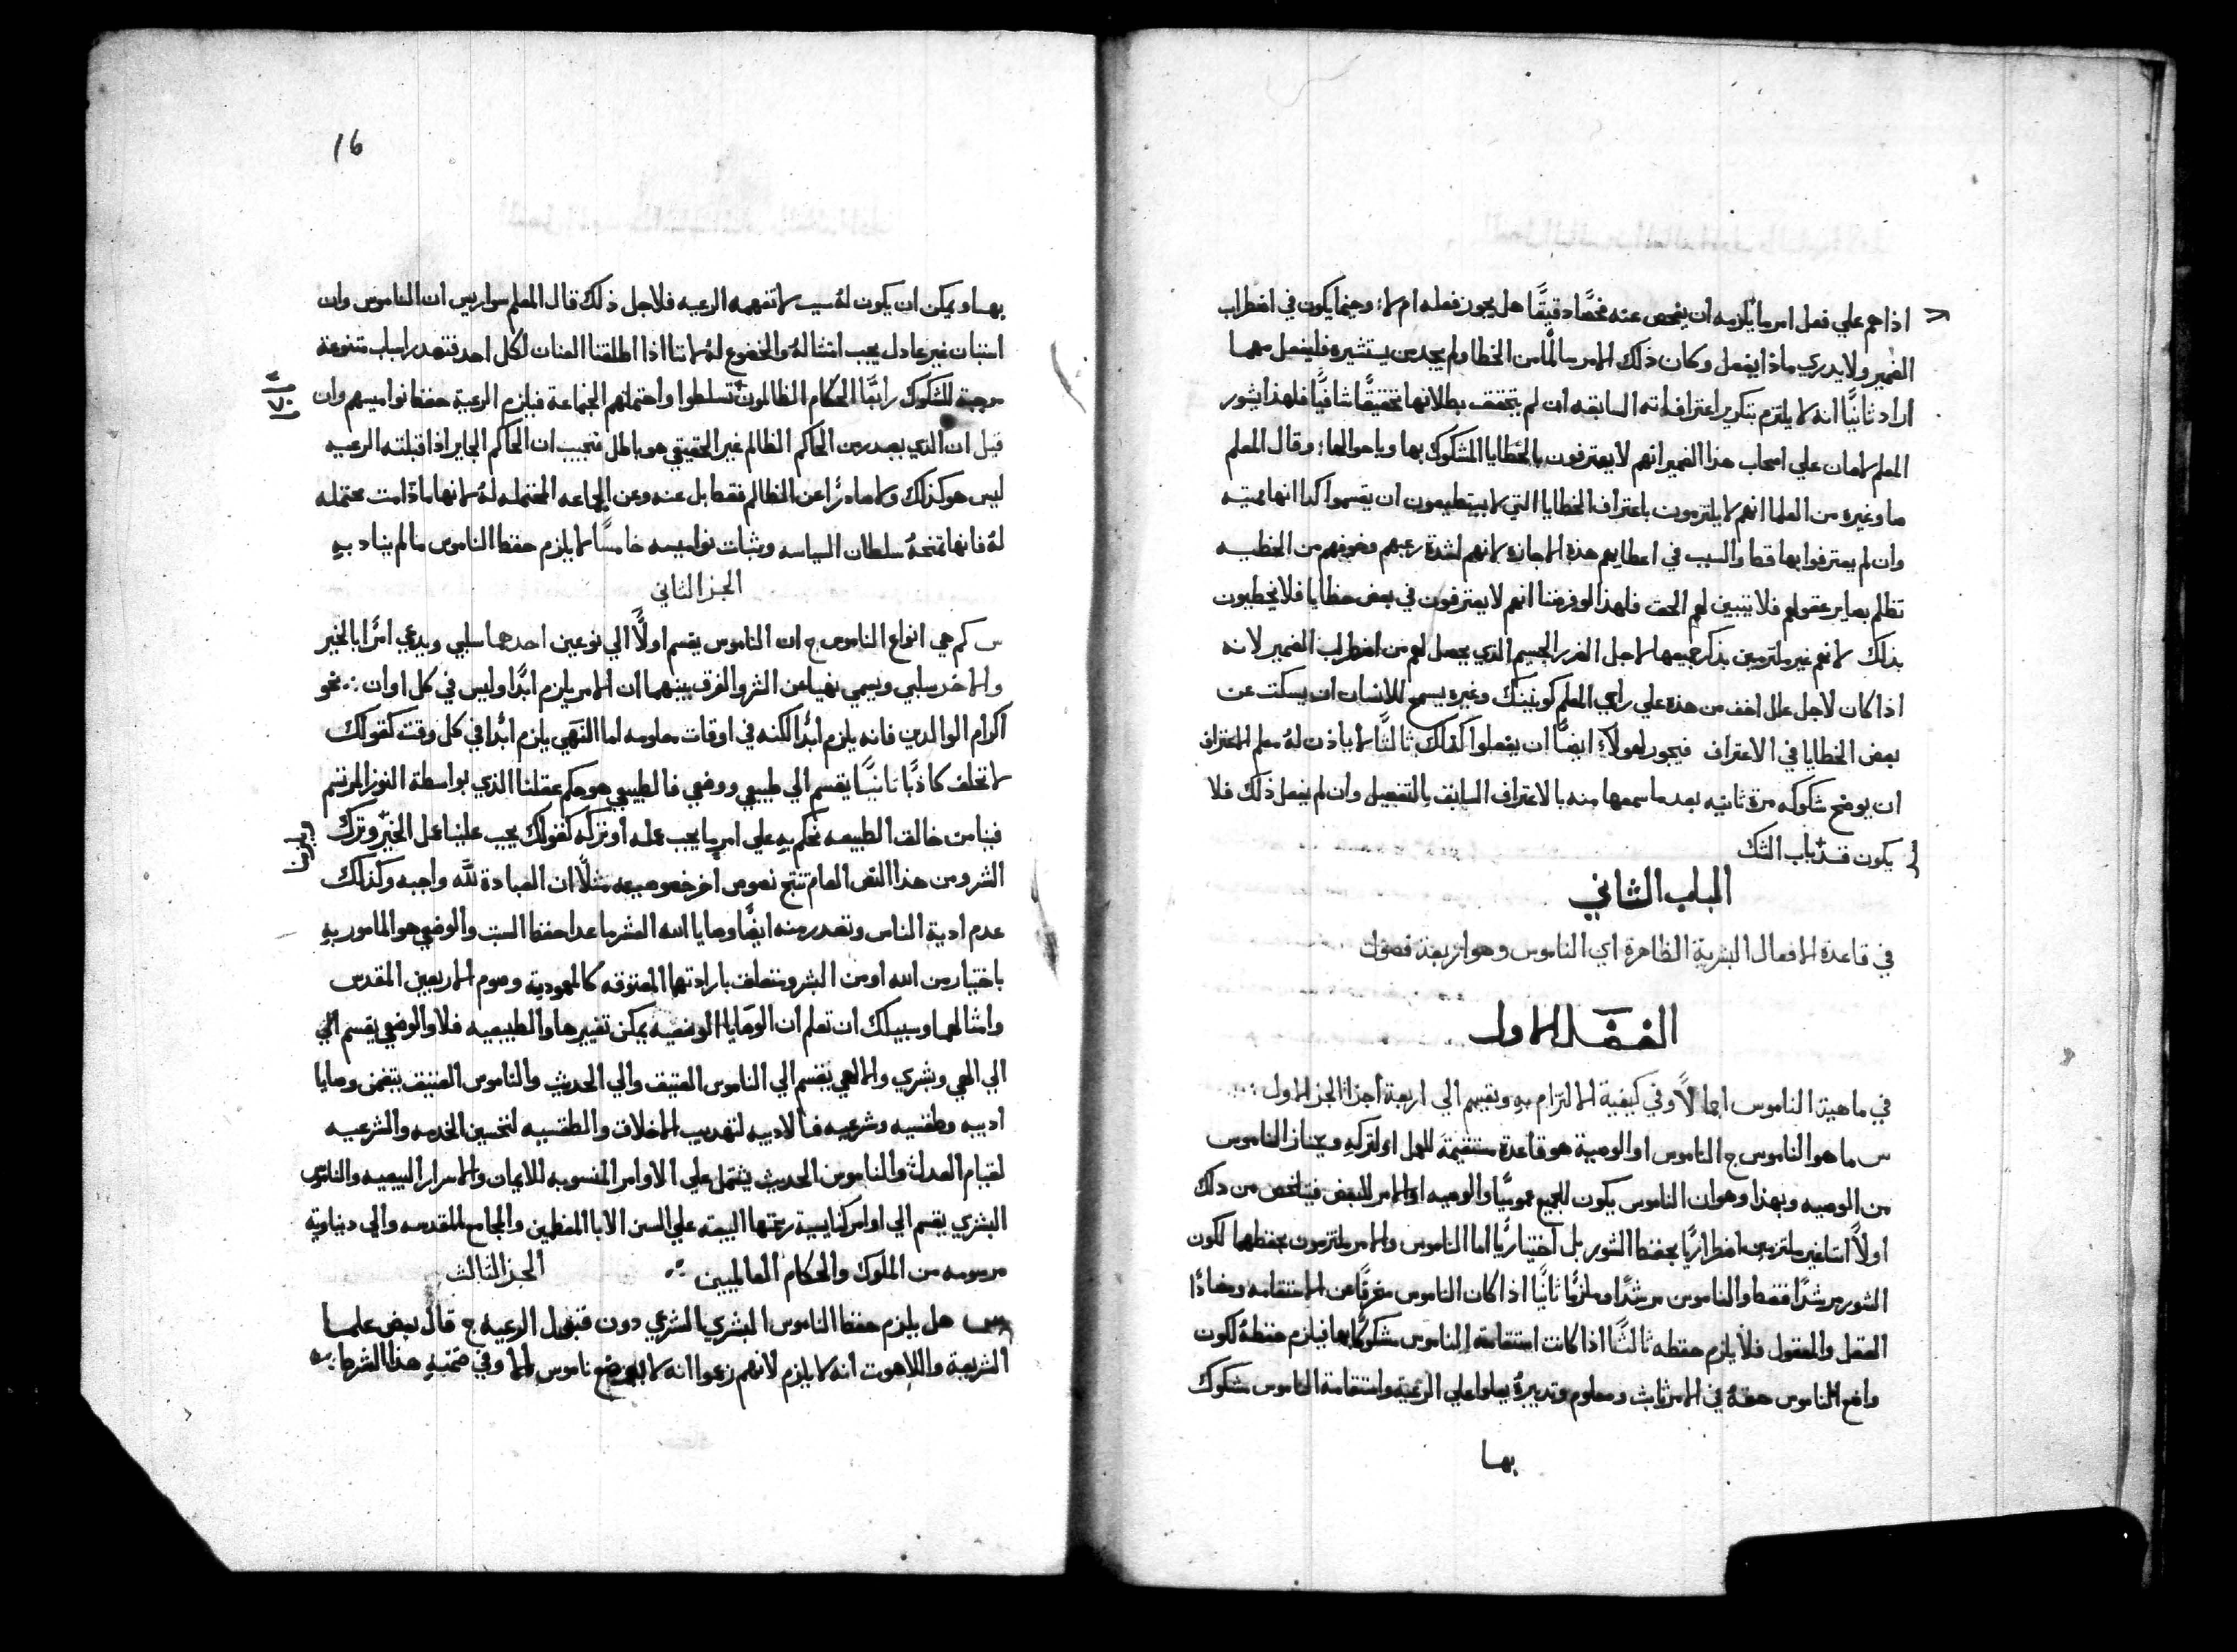 اذا هم علي فعل امر ما يلزمه ان يفحص عنه فحصًا دقيقًا هل يجوز فعله ام لا؛ وحينما يكون في اضطراب
الضمير ولا يدري ماذا يفعل وكان ذلك الامر سالمًا من الخطا ولم يجد من يستشيره فليفعل مهما
اراد ثانيًا انه لا يلتزم بتكرير اعترافاته السابقه ان لم يتحقق بطلانها تحقيقًا شافيًا فلهذا يشور
المعلم لامان علي اصحاب هذا الضمير انهم لا يعترفون بالخطايا المشكوك بها وباحوالها؛ وقال المعلم
ما وغيره من العلما انهم لا يلتزمون باعتراف الخطايا التي لا يستطيعون ان يقسموا كذا انها مميته
وان لم يعترفوا بها قط والسبب في اعطايهم هذه الاجازه لانهم لشدة رعبهم وخوفهم من الخطيه
تظلم بصاير عقولهم فلا يتبين لهم الحق فلهذا لو فرضنا انهم لا يعترفون في بعض خطايا فلا يخطيون
بذلك لانهم غير ملتزمين بذكر جميعها لاجل الضرر الجسيم الذي يحصل لهم من اضطراب الضمير لانه
اذا كان لاجل علل اخف من هذه علي راي المعلم كونينك وغيره يسمح للانسان ان يسكت عن
بعض الخطايا في الاعتراف فيجوز لهولاء ايضًا ان يفعلوا كذلك ثالثًا لا ياذن له معلم الاعتراف
ان يوضح شكوكه مرة ثانيه بعد ما سمعها منه بالاعتراف السابق بالتفصيل وان لم يفعل ذلك فلا
يكون قد باب الشك
الباب الثاني
في قاعدة الافعال البشرية الظاهرة اي الناموس وهو اربعة فصول
الفصل الاول
في ماهية الناموس اجمالًا وفي كيفية الالتزام به ويقسم الي اربعة اجزا الجز الاول
س ما هو الناموس ج الناموس او الوصية هو قاعدة مستقيمة للعمل او لتركه ويمتاز الناموس
من الوصيه وبهذا وهو ان الناموس يكون للجميع عموميًا والوصيه او الامر للبعض فيتلخص من ذلك
اولًا اننا غير ملتزمين اضطراريًا بحفظ الشور بل اختياريًا اما الناموس والامر ملتزمون بحفظهما لكون
الشور مرشدًا فقط والناموس مرشدًا وملزمًا ثانيًا اذا كان الناموس منحرفًا عن الاستقامه ومضادًا
العقل والمعقول فلا يلزم حفظه ثالثًا اذا كانت استقامة الناموس مشكوكًا بها فيلزم حفظه لكون
واضع الناموس حقه في الامر ثابت ومعلوم وتدبيره يعلوا علي الرعية واستقامة الناموس مشكوك
بها
16
بها ويمكن ان يكون له سبب لا تفهمه الرعيه فلاجل ذلك قال المعلم سواريس ان الناموس وان
استبان غير عادل يجب امتثاله والخضوع له لاننا اذا اطلقنا العنان لكل احد فتصدر اسباب متنوعة
موجبة للشكوك رابعًا الحكام الظالمون تسلطوا واحتملتهم الجماعة فيلزم الرعية حفظ نواميسهم وان
قيل ان الذي يصدر من الحاكم الظالم غير الحقيقي هو باطل فنجيب ان الحاكم الجاير اذا قبلته الرعيه
ليس هو كذلك ولا صادرًا عن الظالم فقط بل عنه وعن الجماعه المحتمله له لانها ما دامت محتمله
له فانها تمنحه سلطان السياسه وثبات نواميسه خامسًا لا يلزم حفظ الناموس ما لم يناد به
الجز الثاني
س كم هي انواع الناموس ج ان الناموس يقسم اولًا الي نوعين احدهما سلبي ويدعي امرًا بالخير
والاخر سلبي ويسمي نهيا عن الشر والفرق بينهما ان الامر يلزم ابدًا وليس في كل اوان نحو
اكرام الوالدين فانه يلزم ابدًا لكنه في اوقات معلومه اما النهي يلزم ابدًا في كل وقت كقولك
لا تحلف كاذبًا ثانيًا يقسم الي طبيعي ووضعي فالطبيعي هو حكم عقلنا الذي بواسطة النور المرتسم
فينا من خالق الطبيعه نحكم به علي امر ما يجب عمله او تركه كقولك يجب علينا عمل الخير وترك
الشر ومن هذا النص العام تنتج نصوص اخر خصوصيه مثلًا ان العبادة لله واجبه وكذلك
عدم اذية الناس وتصدر منه ايضًا وصايا الله العشر ما عدا حفظ السبت والوضعي هو المامور به
باختيار من الله او من البشر ومتعلق بارادتهما المعتوقه كالمعمودية وصوم الاربعين المقدس
وامثالهما وسبيلك ان تعلم ان الوصايا الوضعيه يمكن تغييرها والطبيعيه فلا والوضعي يقسم الي
الي الهي وبشري والالهي يقسم الي الناموس العتيق والي الحديث والناموس العتيق يتضمن وصايا
ادبيه وطقسيه وشرعيه فالادبيه لتهذيب الاخلاق والطقسيه لتحسين الخدمه والشرعيه
لقيام العدل والناموس الحديث يشتمل علي الاوامر المنسوبه للايمان والاسرار البيعيه والناموس
البشري يقسم الي اوامر كنايسية رسمتها البيعه علي السن الابا المعظمين والمجامع المقدسه والي دنياوية
مرسومه من الملوك والحكام العالميين الجز الثالث
س هل يلزم حفظ الناموس البشري الشرعي دون قبول الرعيه ج قال بعض علما
الشريعة واللاهوت انه لا يلزم لانهم زعموا انه لا يوضع ناموس الا وفي ضمنه هذا الشرط